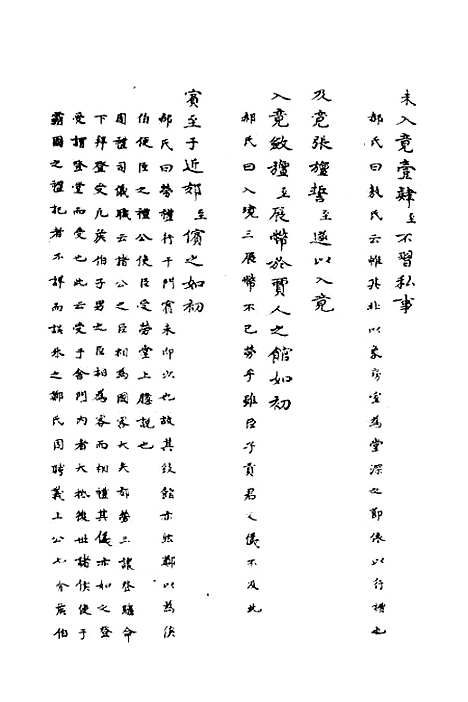 未入竟壹肄至不習私事
郝氏曰敖氏云帷其北以象房室為堂深之節俟以行禮也
及竟張旜誓至遂以入竟
入竟斂旜至展幣於賈人之館如初
郝氏曰入境三展幣不已勞乎雖臣子貢君之儀不及此
賓至于近郊至儐之如初
郝氏曰勞禮行于門賓未即次也故其致館亦然鄭以為侯
伯使臣之禮公使臣受勞堂上臆說也
周禮司儀職云諸公之臣相為國客大夫郊勞三讓登聽命
下拜登受凡侯伯子男之臣相為客而相禮其儀亦如之登
受謂登堂而受也此云受于舍門內者大抵後世諸侯使于
霸國之禮記者不詳而誤采之鄭氏因聘義上公七介侯伯